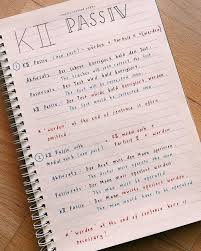 KII PASSIV
① KII Passiv (non past) : würden + Partizip II + (werden)
Aktivsatz: Der Lehrer korrigiert bald den Test.
The teacher will soon correct the test.
Passivsatz: Der Test wird bald korrigiert.
The test will soon be corrected.
KII Passiv: Der Test würde bald korrigiert werden.
The test would soon be corrected.
* werden at the end of sentence is often
② KII Passiv with modal verb
Aktivsatz: Der Arzt muss den Mann operieren.
The doctor must operate the man.
Passivsatz: Der Mann muss operiert werden.
The man must be operated.
KII Passiv: Der Mann müsste operiert werden.
The man would have to be operated.
* werden at the end of sentence here is
necessary!